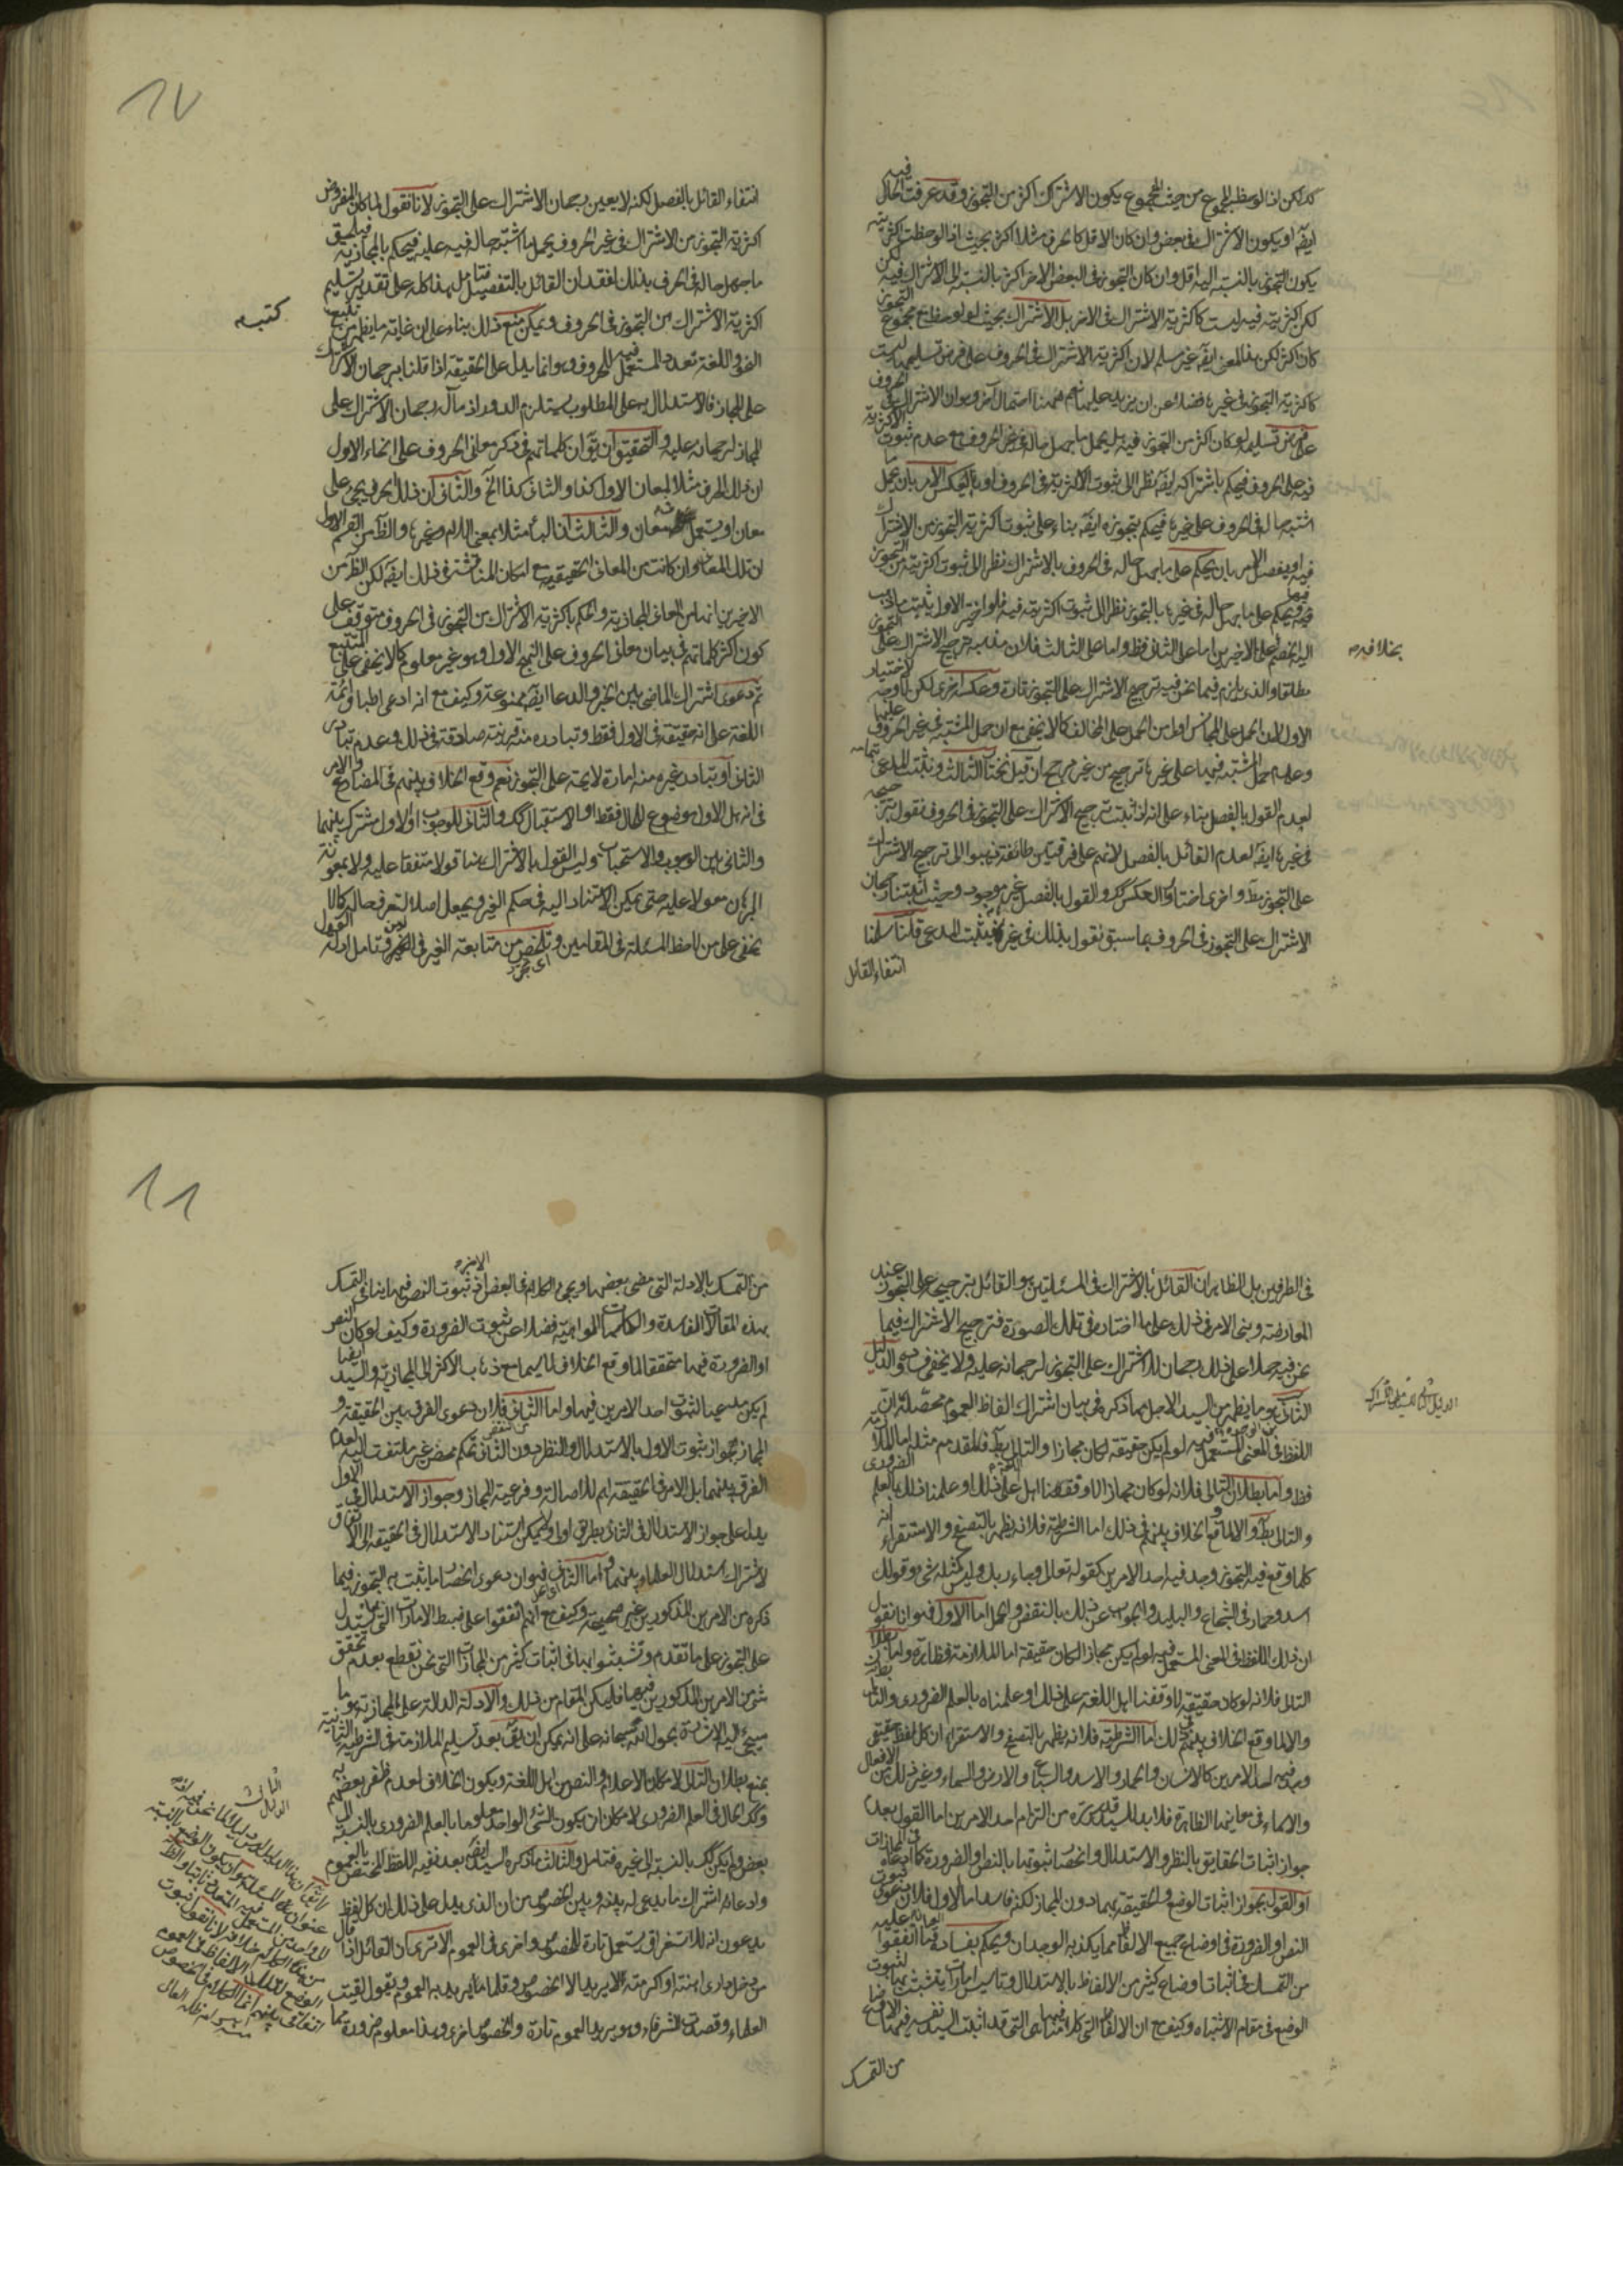 كك لكن اذا لوحظ المجموع من حيث المجموع يكون الاشتراك اكثر من التجوز وقد عرفت الحال فيه
ايضا او يكون الاشتراك في بعض وان كان الاقل كالحرف مثلا اكثر بحيث اذا لوحظت اكثريته
يكون التجوز بالنسبة اليه اقل وان كان التجوز في البعض الاخر اكثر بالنسبة الى الاشتراك فيه لكن
لكن اكثريته فيه ليست كاكثرية الاشتراك في الاخر بل الاشتراك بحيث لو لوحظ مع مجموع التجوز
كان اكثر لكن هذا المعنى ايضا غير مسلم لان اكثرية الاشتراك في الحروف على فرض تسليمها ليست
كاكثرية التجوز في غيرها فضلا عن ان يزيد عليها نعم هنا احتمال آخر وهو ان الاشتراك في الحروف
على فرض تسليمه لو كان اكثر من التجوز فيه بل يحمل ما جهل حاله في غير الحروف مع عدم ثبوت الاكثرية
فيه على الحروف فيحكم باشتراكه ايضا نظرا الى ثبوت الاكثرية في الحروف او بالعكس الامر بان يحمل ما
اشتبه حاله في الحروف على غيرها فيحكم بتجوزه ايضا بناء على ثبوت اكثرية التجوز من الاشتراك
فيه او يفصل الامر بان يحكم على ما جهل حاله في الحروف بالاشتراك نظرا الى ثبوت اكثريته من التجوز
فيه ويحكم على ما جهل حاله في غيرها بالتجوز نظرا الى ثبوت اكثريته فيه فلو اختير الاول يثبت ما ذهب
اليه الخصم على الاخيرين اما على الثاني فظ واما على الثالث فلان مذهبه ترجيح الاشتراك على التجوز
بخلافه
مطلقا والذي يلزم فيما نحن فيه ترجيح الاشتراك على التجوز تارة وعكسه اخرى لكن لا وجه لاختيار
الاول لان الحمل على المجانس اولى من الحمل على المخالف كما لا يخفى مع ان حمل المشتبه في غير الحروف عليها
وعدم حمل المشتبه فيها على غيرها ترجيح من غير مرجح ان قيل نختار الثالث ونثبت المدعى بتمامه
لعدم القول بالفصل بناء على انه اذا ثبت ترجيح الاشتراك على التجوز في الحروف نقول بترجيحه
في غيرها ايضا لعدم القائل بالفصل لانهم على فرقتين طائفة ذهبوا الى ترجيح الاشتراك
على التجوز مط واخرى اختاروا العكس كك والقول بالفصل غير موجود وحيث اثبتنا رجحان
الاشتراك على التجوز في الحروف بما سبق نقول بذلك في غيرها فيثبت المدعى قلنا سلمنا
انتفاء القائل
١٧
انتفاء القائل بالفصل لكنه لا يعين رجحان الاشتراك على التجوز لانا نقول لما كان المفروض
اكثرية التجوز من الاشتراك في غير الحروف يحمل ما اشتبه حاله فيه عليه فيحكم بالمجازية فيلحق
ما جهل حاله في الحرف بذلك لفقدان القائل بالتفصيل فتامل هذا كله على تقدير تسليم
اكثرية الاشتراك من التجوز في الحروف ويمكن منع ذلك بناء على ان غاية ما يظهر من تتبع
كتب
النحو واللغة تعدد المستعمل فيه للحروف وهو انما يدل على الحقيقة اذا قلنا برجحان الاشتراك
على المجاز فالاستدلال به على المطلوب يستلزم الدور اذ مآله رجحان الاشتراك على
المجاز لرجحانه عليه والتحقيق ان يق ان كلماتهم في ذكر معاني الحروف على انحاء الاول
ان ذلك الحرف مثلا لمعان الاول كذا والثاني كذا الخ والثاني ان ذلك الحرف يجيء على
معان او يستعمل في معان والثالث ان الباء مثلا بمعنى اللام وغيرها والظ من القسم الاول
ان تلك المعاني وان كانت من المعاني الحقيقية مع امكان المناقشة في ذلك ايضا لكن الظ من
الاخيرين انها من المعاني المجازية والحكم باكثرية الاشتراك من التجوز في الحروف متوقف على
كون اكثر كلماتهم في بيان معاني الحروف على النهج الاول وهو غير معلوم كما لا يخفى على المتتبع
ثم دعوى اشتراك الماضي بين الخبر والدعا ايضا ممنوعة وكيف مع انه ادعى اطباق ائمة
اللغة على انه حقيقة في الاول فقط وتبادره منه قرينة صادقة في ذلك وعدم تبادر
الثاني او تبادر غيره منه امارة لايحة على التجوز نعم وقع الخلاف بينهم في المضارع والامر
في انه هل الاول موضوع للحال فقط او الاستقبال كك والثاني للوجوب او الاول مشترك بينهما
والثاني بين الوجوب والاستحباب وليس القول بالاشتراك هنا قولا متفقا عليه ولا بمعونة
البرهان معولا عليه حتى يمكن الاستناد اليه في حكم الغير ويجعل اصلا لتعرف حاله كما لا
يخفى على من لاحظ المسئلة في المقامين وتلخص من متابعة الغير في الخبر وتامل ادلة القول
في الطرفين بل الظاهر ان القائل بالاشتراك في المسئلتين هو القائل بترجيحه على التجوز عند
المعارضة وبنى الامر في ذلك على ما اختاره في تلك الصورة فترجيح الاشتراك فيما
نحن فيه حملا على ذلك رجحان للاشتراك على التجوز لرجحانه عليه ولا يخفى دوره والدليل
الثاني هو ما يظهر من السيد الاجل مما ذكره في بيان اشتراك الفاظ العموم محصله ان
اللفظ في المعنى المستعمل فيه لو لم يكن حقيقة لكان مجازا والتالي بط فالمقدم مثله اما الملازمة
فظ واما بطلان التالي فلانه لو كان مجازا لاوقفنا اهل اللغة على ذلك او علمنا ذلك بالعلم الضروري
والتالي بط والا لما وقع الخلاف بينهم في ذلك اما الشرطية فلانه يظهر بالتصفح والاستقراء انه
كلما وقع فيه التجوز وجد فيه احد الامرين كقوله تعالى وجاء ربك وليس كمثله شيء وقولك
اسد وحمار في الشجاع والبليد والجواب عن ذلك بالنقض والحل اما الاول فهو انا نقول
ان ذلك اللفظ في المعنى المستعمل فيه لو لم يكن مجازا لكان حقيقة اما الملازمة فظاهرة واما بطلان
التالي فلانه لو كان حقيقة لاوقفنا اهل اللغة على ذلك او علمناه بالعلم الضروري والتالي بط
والا لما وقع الخلاف بينهم في ذلك اما الشرطية فلانه يظهر بالتصفح والاستقراء ان كل لفظ حقيقي
وجد فيه احد الامرين كالانسان والحمار والاسد والسباع والارض والسماء وغير ذلك من الافعال
والاسماء في معانيها الظاهرة فلا بد للسيد قدس سره من التزام احد الامرين اما القول بعدم
جواز اثبات الحقايق بالنظر والاستدلال وانحصار ثبوتها بالنص او الضرورة كما ادعاه في المجازات
او القول بجواز اثبات الوضع والحقيقة بهما دون المجاز لكنه فاسد اما الاول فلان دعوى ثبوت
النص او الضرورة في اوضاع جميع الالفاظ مما يكذبه الوجدان ويحكم بفساده ما اتفقوا عليه
من التمسك في اثبات اوضاع كثير من الالفاظ بالاستدلال وتاسيس امارات يتشبث بها لثبوت
الوضع في مقام الاشتباه وكيف مع ان الالفاظ التي كلامنا فيها هي التي قد اثبت السيد نفسه فيها
من التمسك
١٨
من التمسك بالادلة التي مضى بعضها ويجيء الكلام في البعض اذ ثبوت النص فيها ينافي التمسك
بهذه المقالات الفاسدة والكلمات الواهية فضلا عن ثبوت الضرورة وكيف لو كان النص
او الضرورة فيها متحققا لما وقع الخلاف لا سيما مع ذهاب الاكثر الى المجازية والسيد ايضا
لم يكن مدعيا لثبوت احد الامرين فيها واما الثاني فلان دعوى الفرق بين الحقيقة و
المجاز بجواز ثبوت الاول بالاستدلال والنظر دون الثاني تحكم محض غير ملتفت اليه لعدم
الفرق بينهما بل الامر في الحقيقة اهم للاصالة وفرعية المجاز وجواز الاستدلال في الاول
يدل على جواز الاستدلال في الثاني بطريق اولى ولا يمكن استناد الاستدلال في الحقيقة الى الاتفاق
لاشتراك استدلال العلماء بينهما واما الثاني فهو ان دعوى انحصار ما يثبت به التجوز فيما
ذكره من الامرين المذكورين غير صحيحة وكيف مع انهم اتفقوا على ضبط الامارات التي يستدل بها
على التجوز على ما تقدم وتشبثوا بها في اثبات كثير من المجازات التي نحن نقطع بعدم تحقق
شيء من الامرين المذكورين فيها فليكن المقام من ذلك والادلة الدالة على المجازية هو ما
سيجيء اليه الاشارة بعون الله سبحانه على انه يمكن ان يق بعد تسليم الملازمة في الشرطية الثانية
بمنع بطلان التالي لامكان الاعلام والنص من اهل اللغة ويكون الخلاف لعدم ظفر بعضهم به
وكذا الحال في العلم الضروري لامكان ان يكون الشيء الواحد معلوما بالعلم الضروري بالنسبة الى
بعض ولم يكن كك بالنسبة الى غيره فتامل والثالث ما ذكره السيد ايضا بعد نفيه اللفظ المختص بالعموم
وادعائه اشتراك ما يدعى له بينه وبين الخصوص من ان الذي يدل على ذلك ان كل لفظ
يدعون انه للاستغراق يستعمل تارة للخصوص واخرى في العموم الا ترى ان القائل اذا قال
من دخل داري اهنته او اكرمته لا يريد الا الخصوص وقلما يريد به العموم ويقول لقيت
العلماء وقصدت الشرفاء وهو يريد العموم تارة والخصوص اخرى وهذا معلوم ضرورة
الدليل الثالث